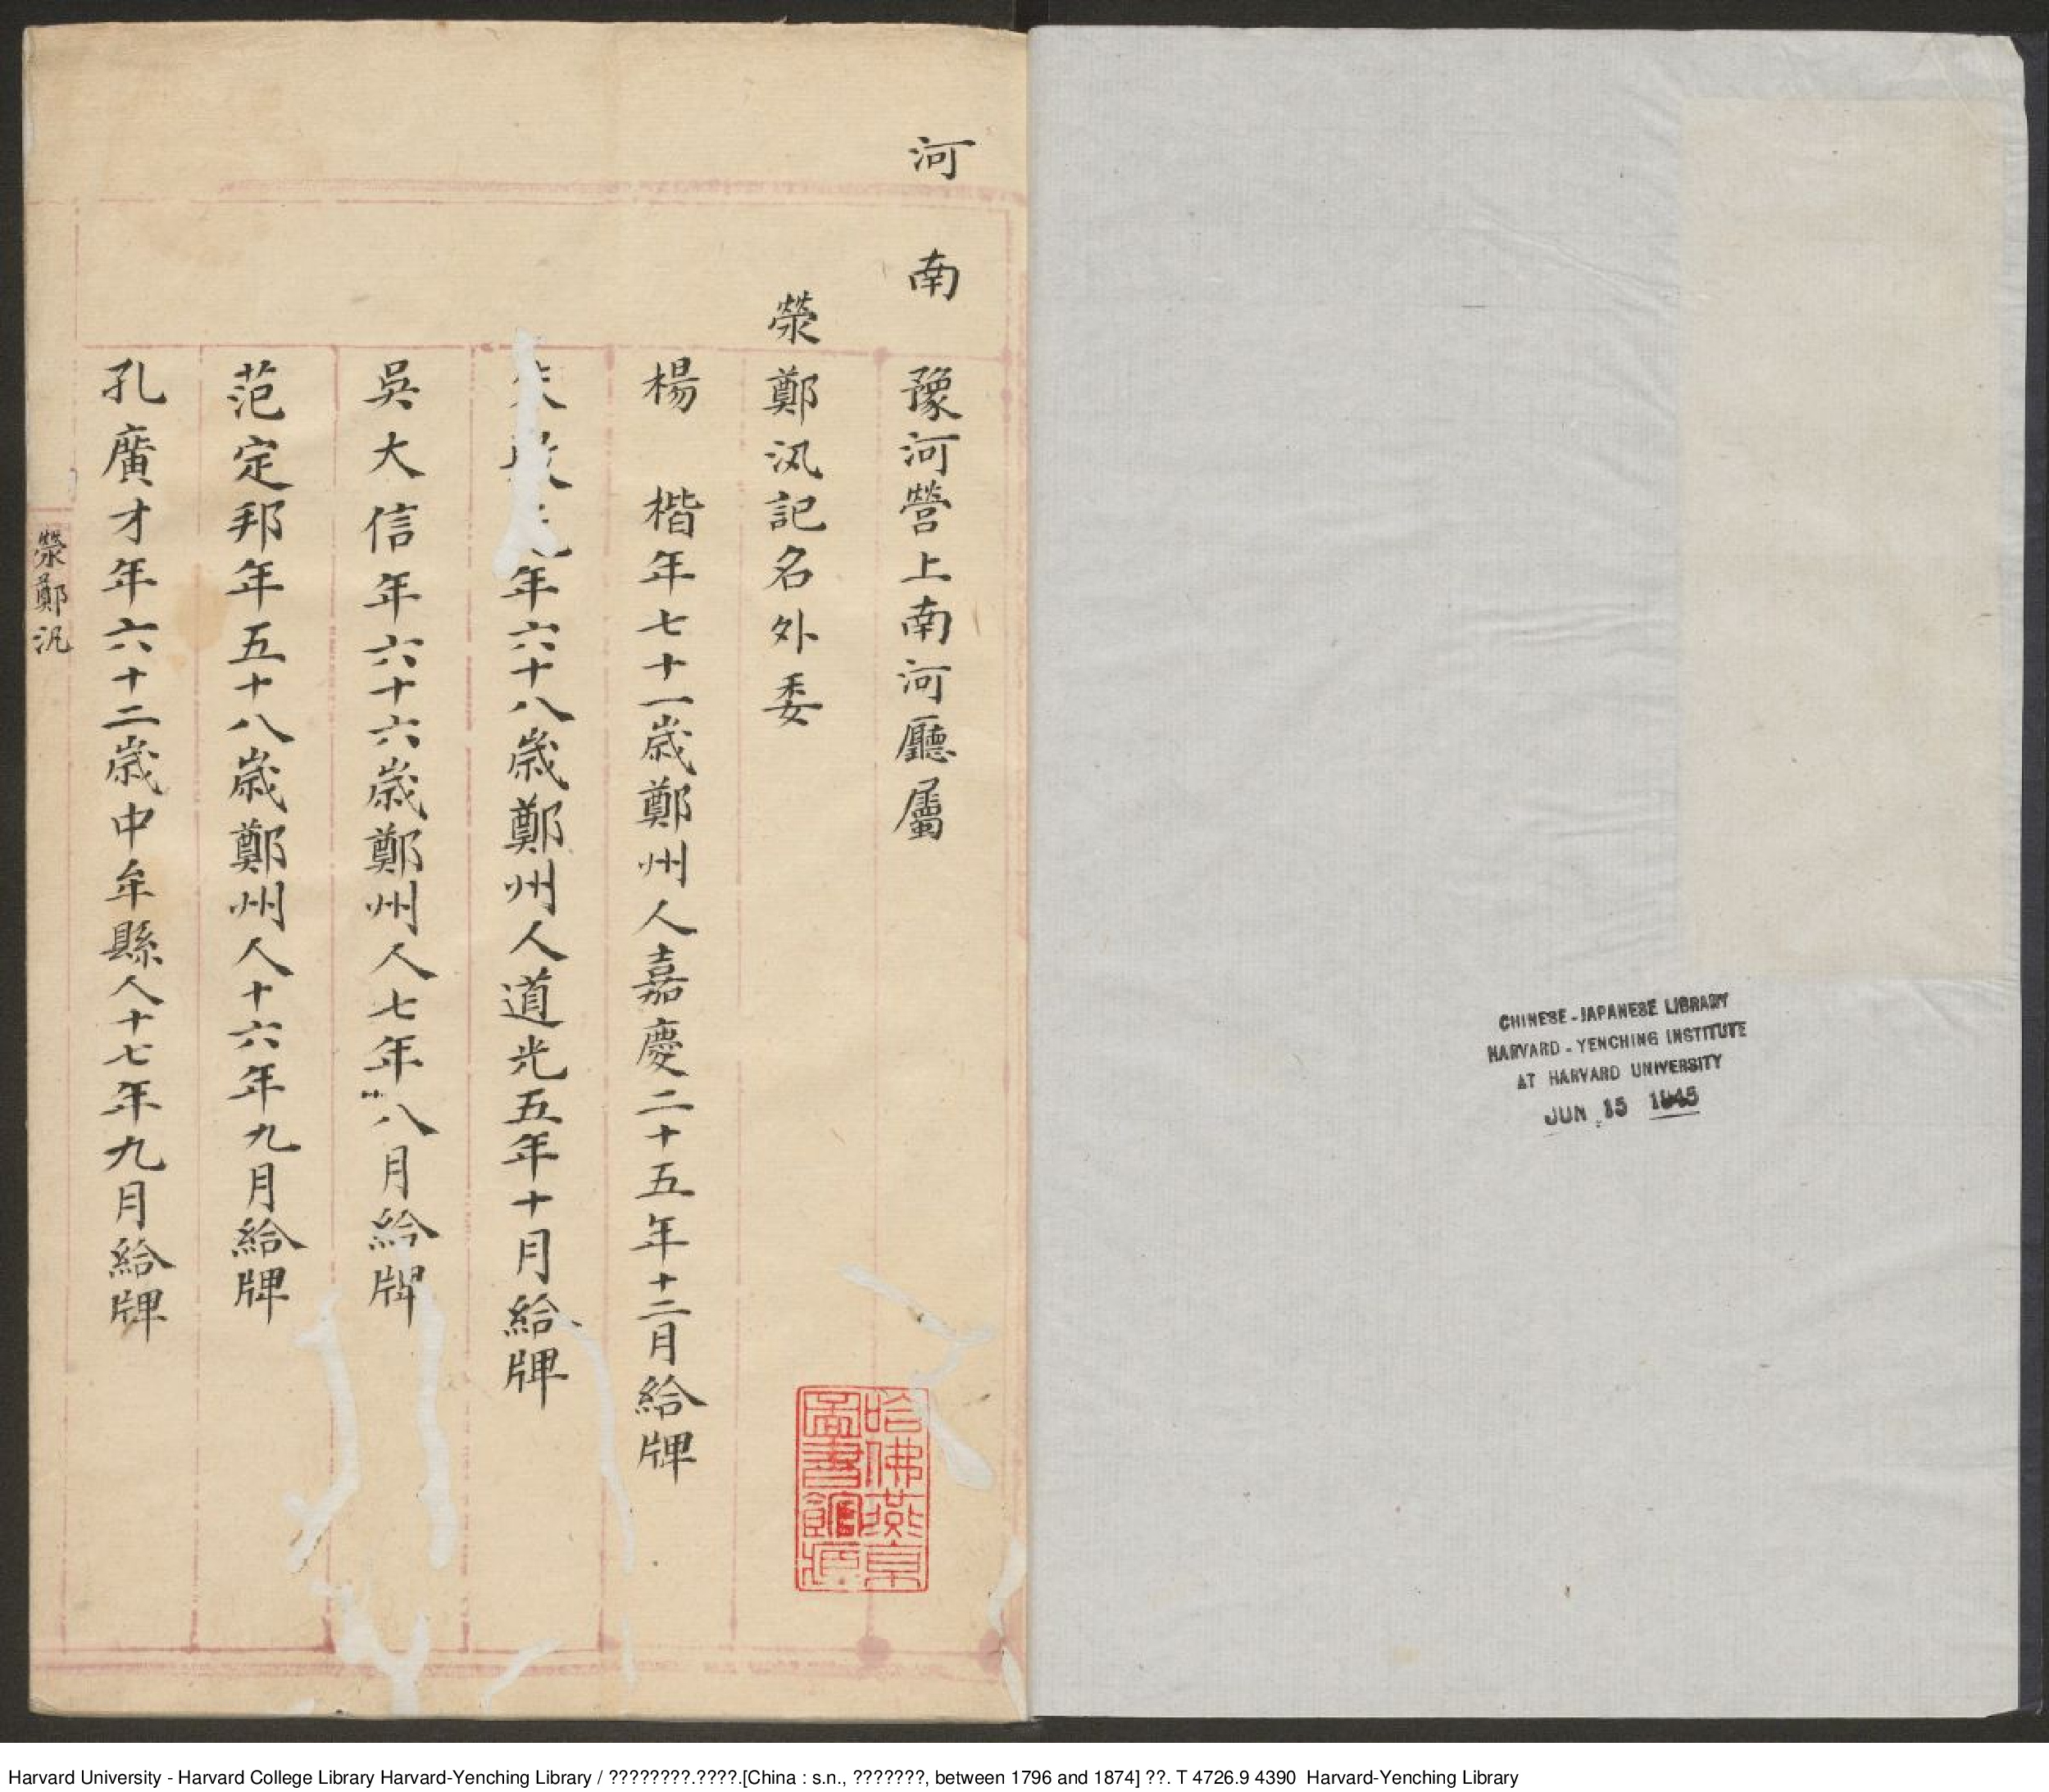 河南 豫河營上南河廳屬
滎鄭汛記名外委
楊 楷年七十一歲鄭州人嘉慶二十五年十二月給牌
年六十八歲鄭州人道光五年十月給牌
吳大信年六十六歲鄭州人七年八月給牌
范定邦年五十八歲鄭州人十六年九月給牌
孔廣才年六十二歲中牟縣人十七年九月給牌
滎鄭汛
哈佛燕京
圖書館藏
CHINESE-JAPANESE LIBRARY
HARVARD-YENCHING INSTITUTE
AT HARVARD UNIVERSITY
JUN 15 1945
Harvard University - Harvard College Library Harvard-Yenching Library / ????????.????.[China : s.n., ???????, between 1796 and 1874] ??. T 4726.9 4390 Harvard-Yenching Library